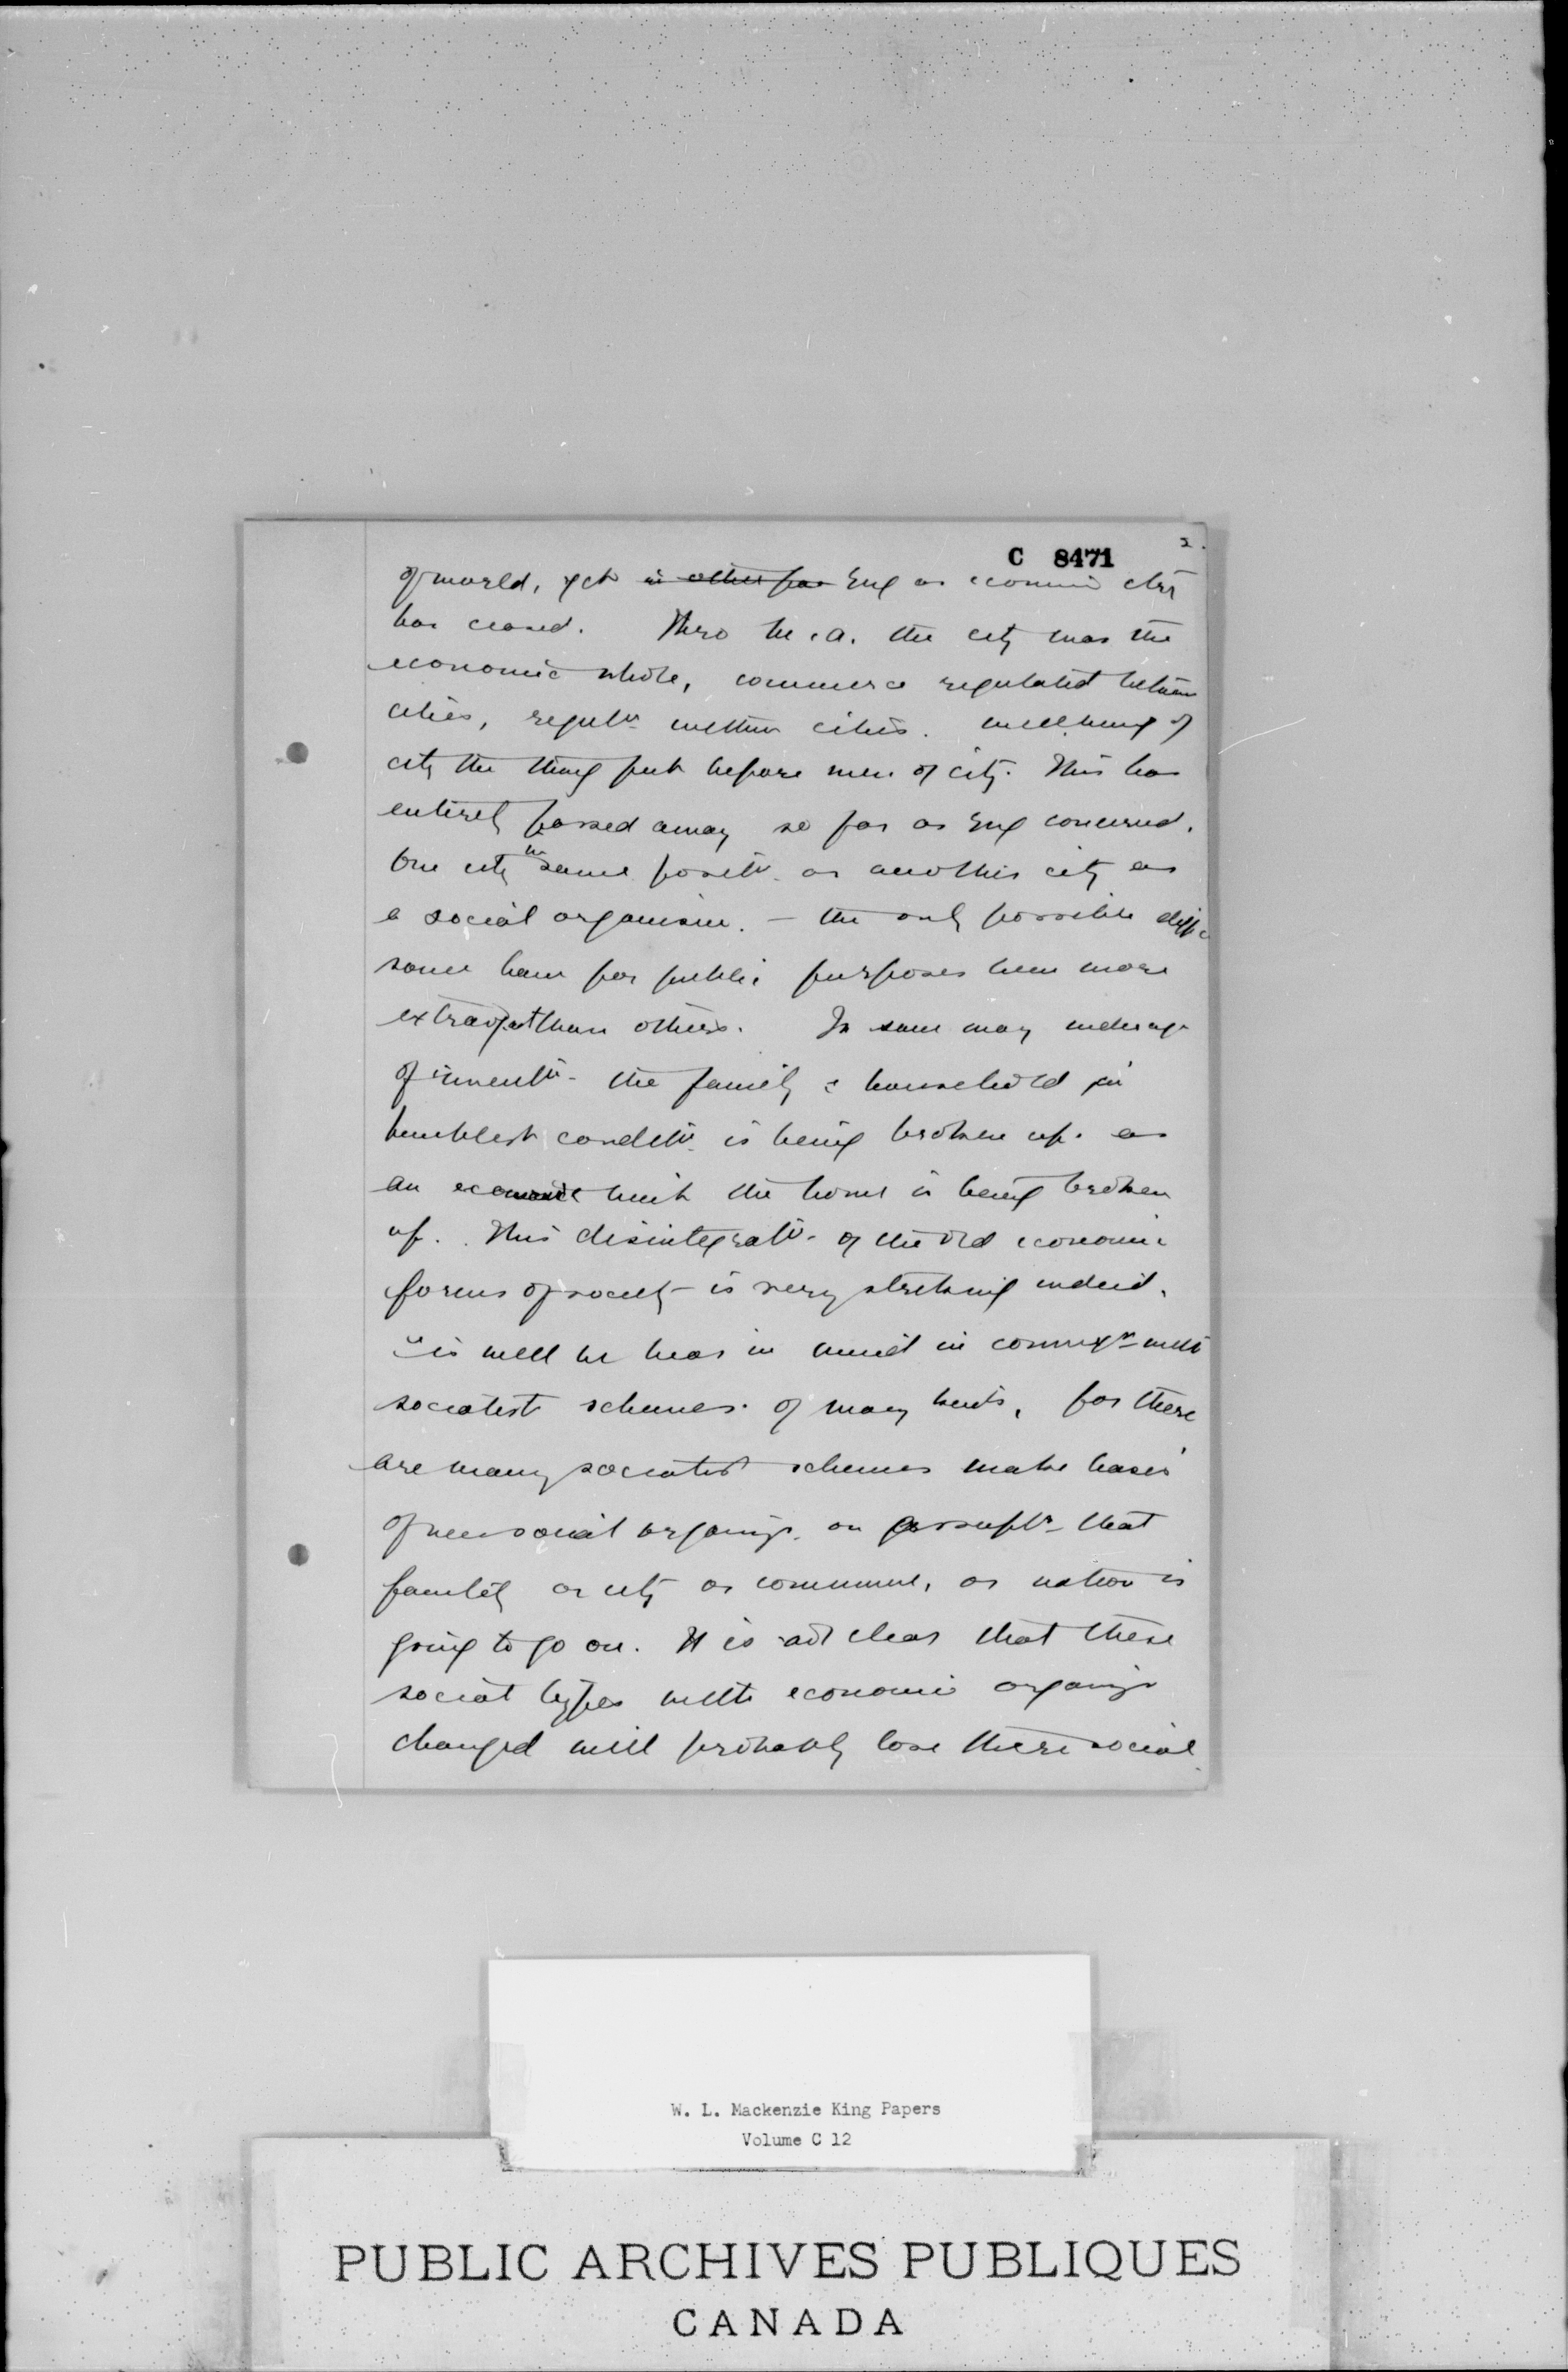 2.
C 8471
of world, yet in other for Eng as economic
has ceased. Thro M.A. the city was the
economic whole, commerce regulated between
cities, regultn within cities. well being of
city the thing put before men of city. This has
entirely passed away so far as Eng concerned.
One city in same positn as another city as
a social organism. - the only possible diffce
some have for public purposes been more
extravgt than others. In same way under
of inventn the family & household in
humblest conditn is being broken up. as
an economic unit the home is being broken
up. This disintegratn of the old economic
forms of society is very striking indeed.
is well to bear in mind in connextn with
socialist schemes of many kinds, for there
are many socialist schemes make basis
of new social organizn on assumptn that
family or city or commune, or nation is
going to go on. It is not clear that these
social types with economic organizn
changed will probably lose their social
W. L. Mackenzie King Papers
Volume C 12
PUBLIC ARCHIVES PUBLIQUES
CANADA